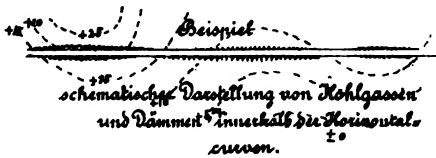 +15 +20 +25 Beispiel
+25
schematischer Darstellung von Hohlgassen
und Dämmen innerhalb der Horizontal=
±0
curven.